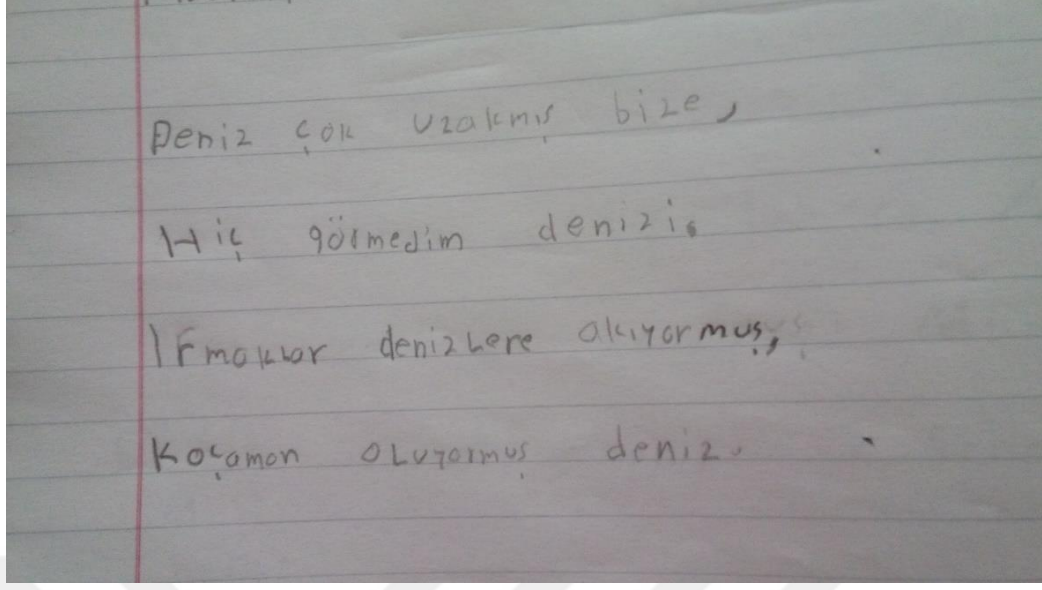 Deniz çok uzakmış bize,
Hiç görmedim denizi.
Irmaklar denizlere akıyormuş,
Koçaman oluyormuş deniz.